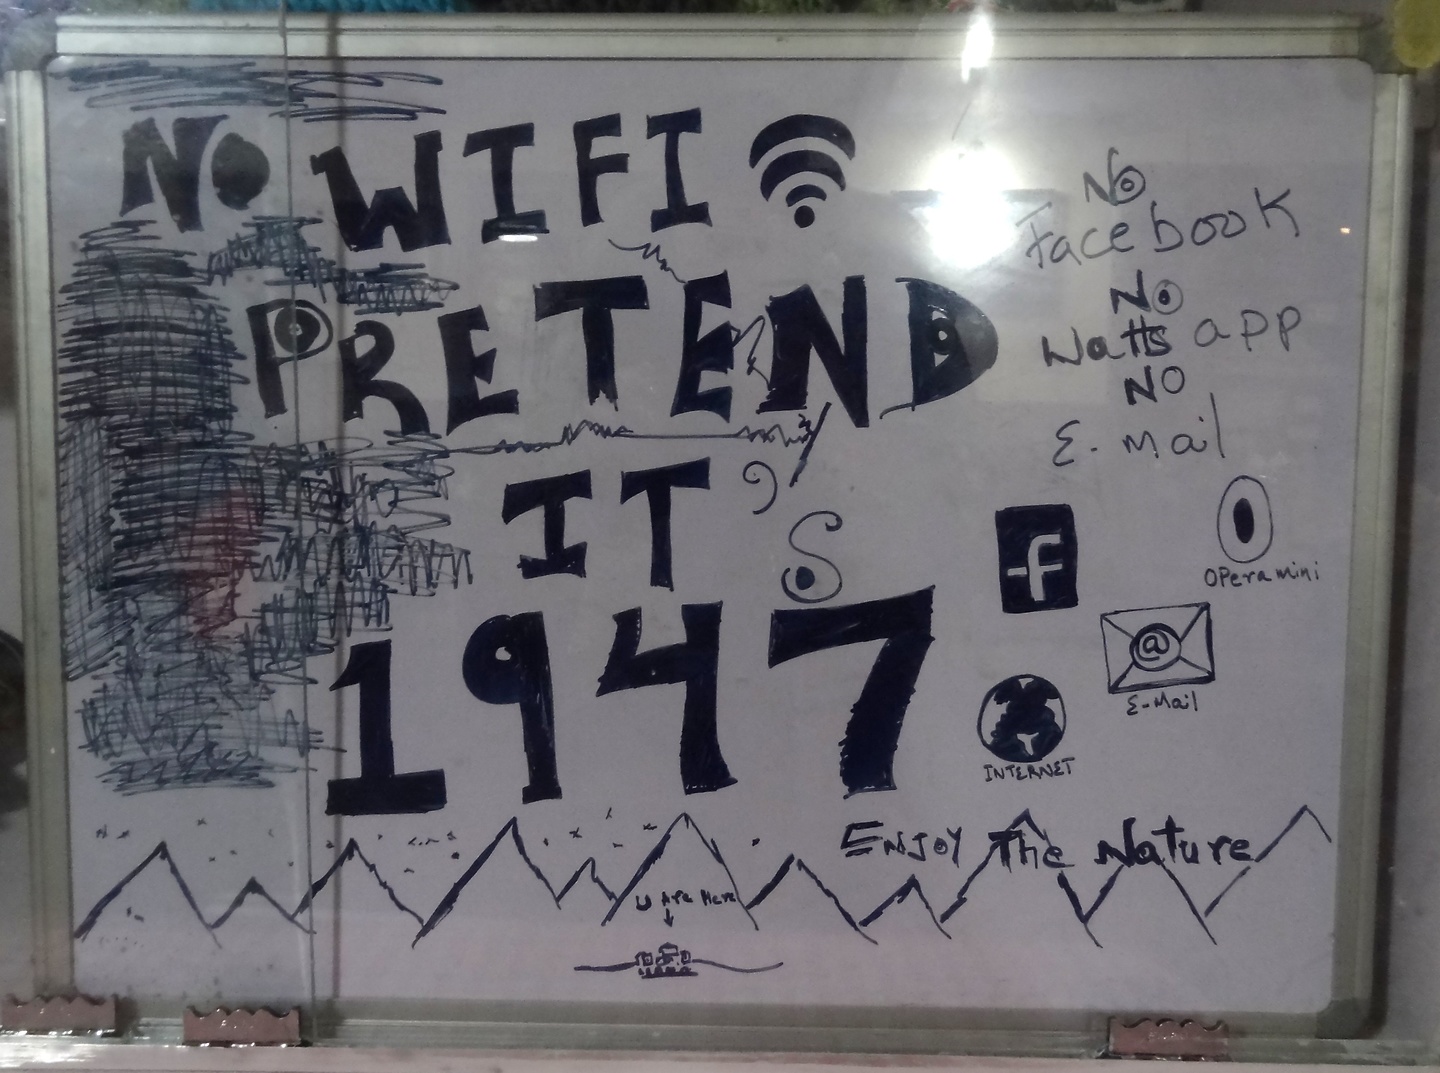 NO WIFI
PRETEND
IT'S
1947
No
Facebook
No
Watts app
NO
E-Mail
f
Opera mini
@
E-Mail
INTERNET
Enjoy The Nature
U Are Here